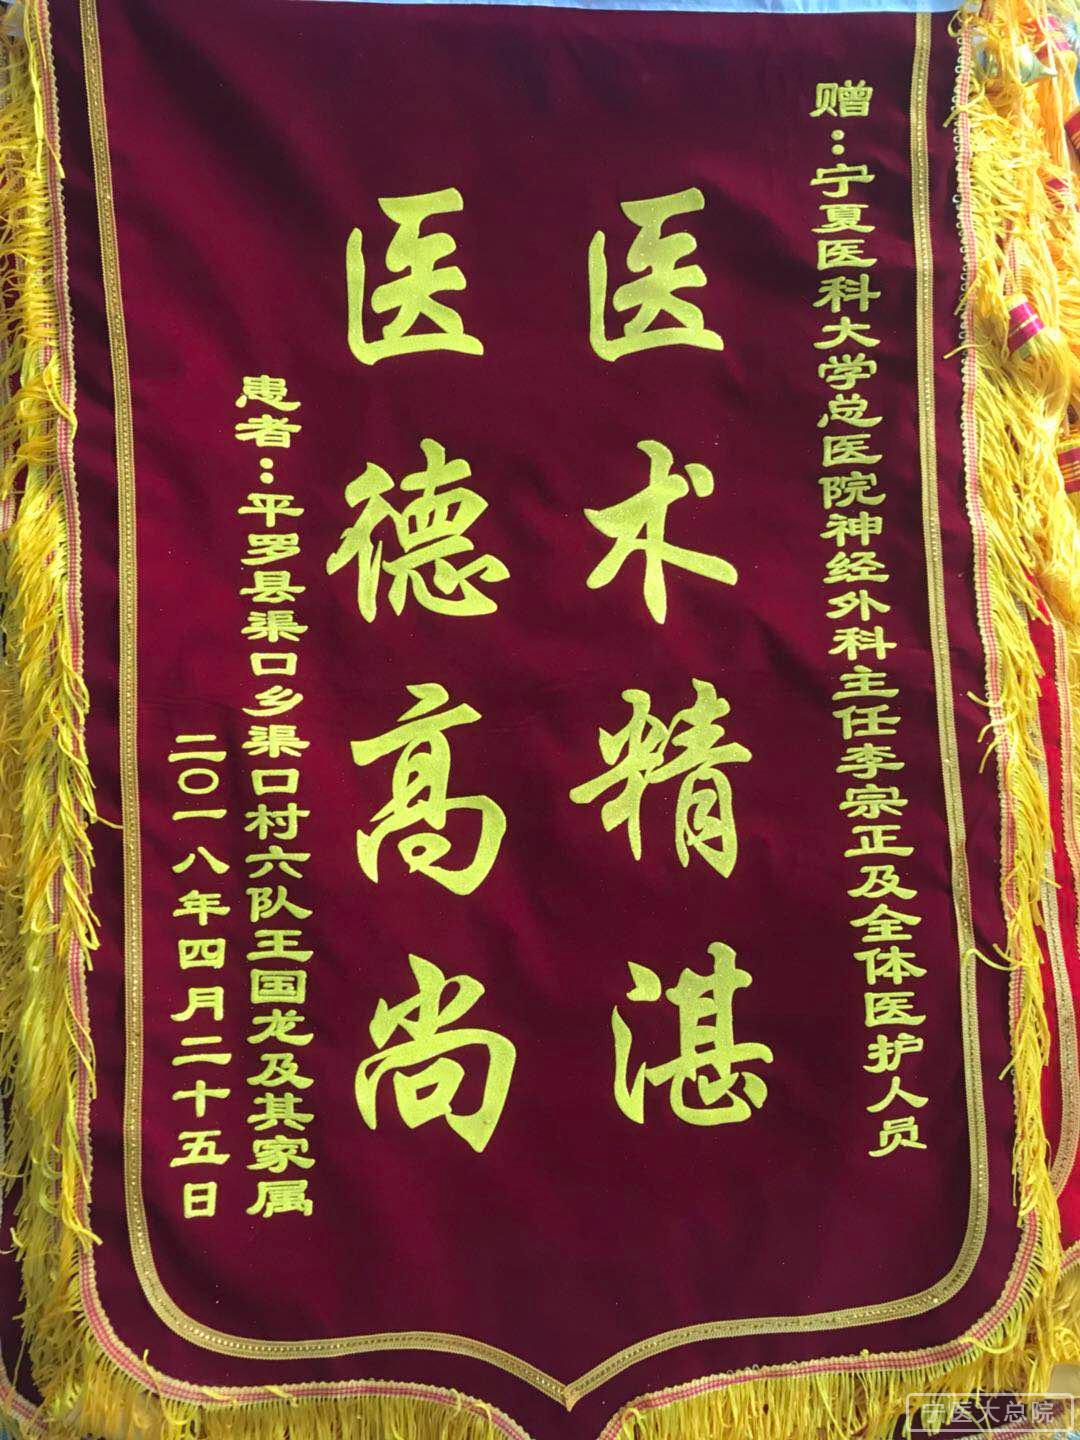 赠：宁夏医科大学总医院神经外科主任李宗正及全体医护人员
医术精湛
医德高尚
患者：平罗县渠口乡渠口村六队王国龙及其家属
二〇一八年四月二十五日
宁医大总院